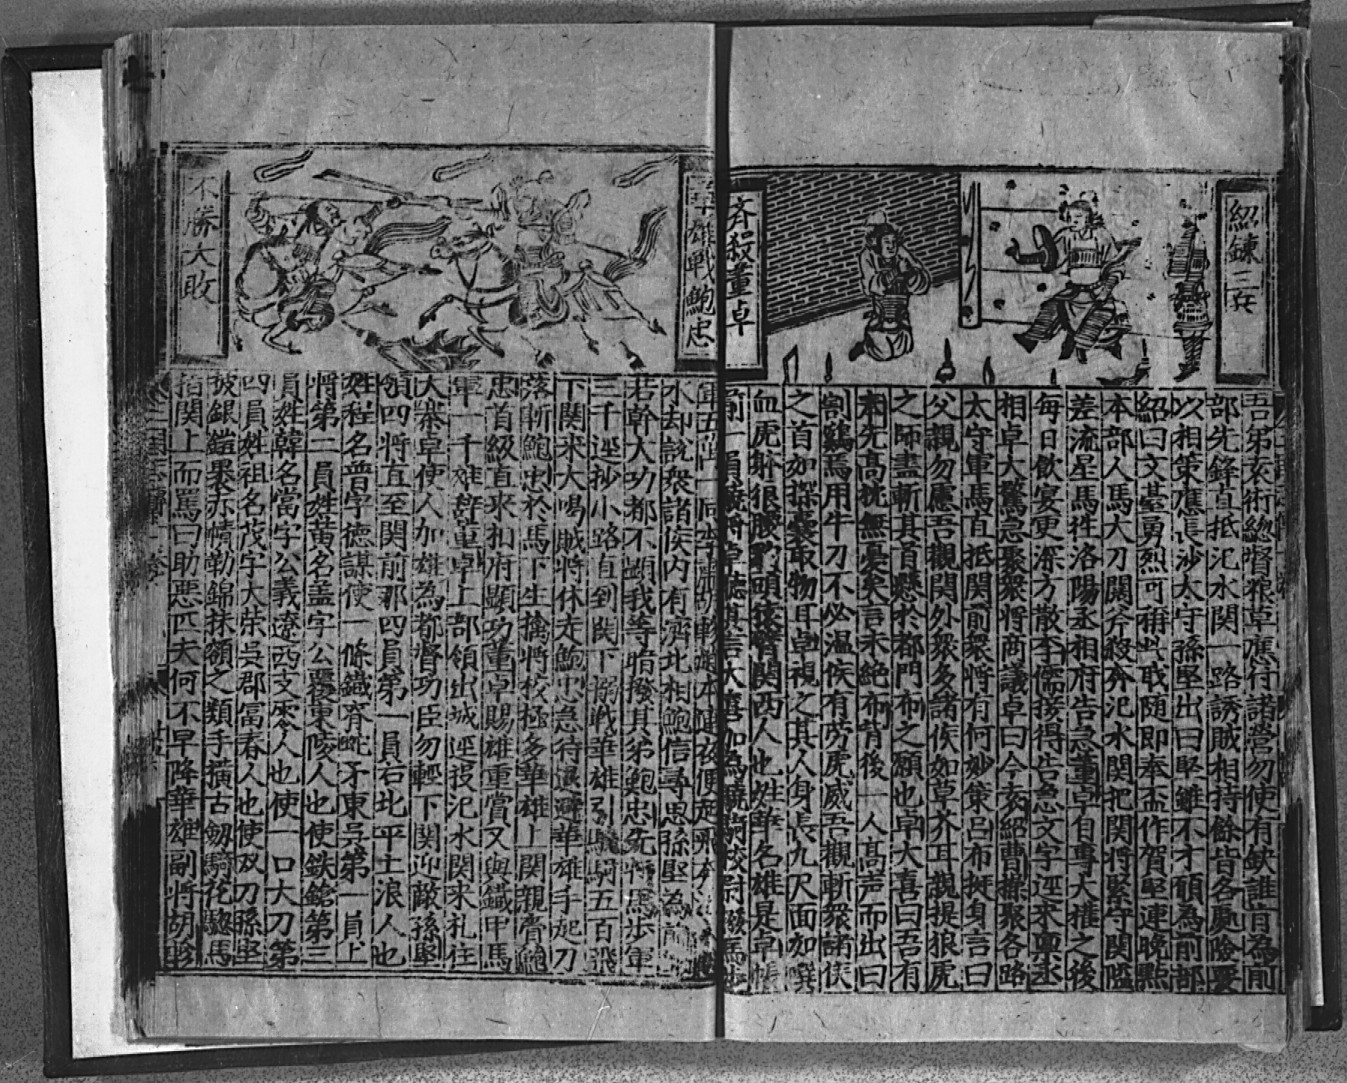 紹鍊三兵
齐殺董卓
吾弟亥術總督粮草應付諸營勿使有欽誰肯為前
部先鋒直抵汜水関一路誘賊相持餘皆各處險要
以相策應長沙太守孫堅出曰堅雖不才願為前部
紹曰文臺勇烈可稱此取随即奉盃作賀堅連晚點
本部人馬大刀闊斧殺奔汜水関把関將緊守関隘
差流星馬徃洛陽丞相府告急董卓自專大權之後
每日飲宴更深方散李儒接得告急文字逕来稟丞
相卓大驚急聚眾將商議卓曰今袁紹曹操聚各路
太守軍馬直抵関前衆將有何妙策呂布挺身言曰
父親勿慮吾觀関外衆多諸侯如草芥耳親提狼虎
之師盡斬其首懸於都門布之願也卓大喜曰吾有
奉先高枕無憂矣言未絶布背後一人高声而出曰
割鷄焉用牛刀不必温侯有防虎威吾觀斬衆諸侯
之首如探囊取物耳卓視之其人身長九尺面如噀
血虎躯狼腰豹頭猿臂関西人也姓華名雄是卓帳
前一員驍將卓聴其言大喜加為驍騎校尉撥馬步
華雄戰鮑忠
不勝大敗
軍五萬一同李肅胡軫趙本連夜便起飛奔
水却說衆諸侯内有濟北相鮑信尋思孫堅為前
若幹大功都不顕我等暗撥其弟鮑忠先將馬步軍
三千逕抄小路直到関下搦戰華雄引驍騎五百飛
下関来大喝賊將休走鮑忠急待退避華雄手起刀
落斬鮑忠於馬下生擒將校極多華雄上関親賫鮑
忠首級直来扣府顯功董卓賜雄重賞又與鐡甲馬
軍一千雄辞董卓上部領出城逕投汜水関来札住
大寨卓使人加雄為都督功臣勿輕下関迎敵孫堅
領四將直至関前那四員第一員右北平土浪人也
姓程名普字德謀使一條鐡脊蛇矛東吳第一員上
將第二員姓黄名盖字公覆東陵人也使鉄鎗第三
員姓韓名當字公義遼西支零人也使一口大刀第
四員姓祖名茂字大荣吳郡富春人也使双刀孫堅
披銀鎧裹赤幘勒錦抹額之類手横古劔騎花驄馬
指関上而罵曰助惡匹夫何不早降華雄副將胡軫